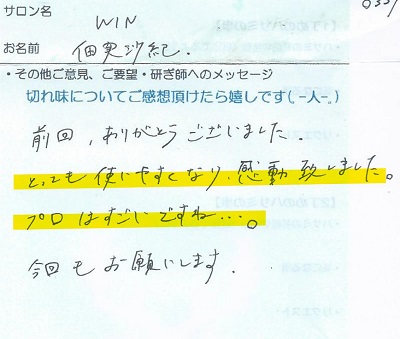 サロン名
WIN
お名前 佃実沙紀.
・その他ご意見、ご要望・研ぎ師へのメッセージ
切れ味についてご感想頂けたら嬉しです(,-人-,)
前回,ありがとうございました.
とっても使いやすくなり,感動致しました。
プロはすごいですね…。
今回もお願いします.